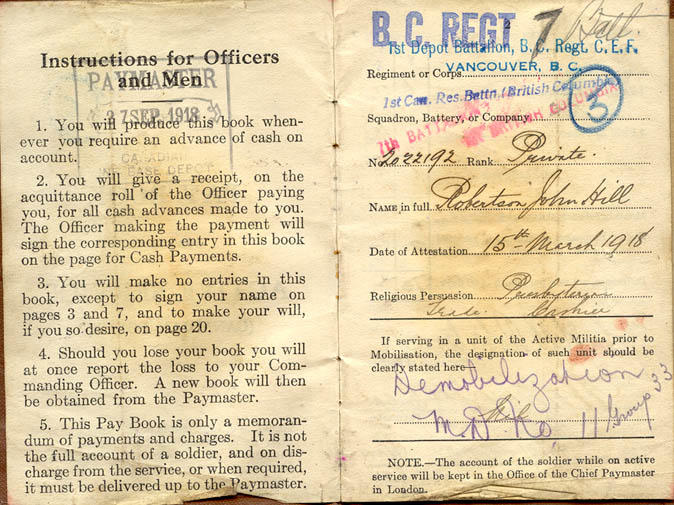 Instructions for Officers
and Men
PAYMASTER
27 SEP 1918
1. You will produce this book when-
ever you require an advance of cash on
account.
2. You will give a receipt, on the
acquittance roll of the Officer paying
you, for all cash advances made to you.
The Officer making the payment will
sign the corresponding entry in this book
on the page for Cash Payments.
3. You will make no entries in this
book, except to sign your name on
pages 3 and 7, and to make your will,
if you so desire, on page 20.
4. Should you lose your book you will
at once report the loss to your Com-
manding Officer. A new book will then
be obtained from the Paymaster.
5. This Pay Book is only a memoran-
dum of payments and charges. It is not
the full account of a soldier, and on dis-
charge from the service, or when required,
it must be delivered up to the Paymaster.
2
B. C. REGT 7 Batt.
1st Depot Battalion, B. C. Regt. C. E. F.
VANCOUVER, B. C.
Regiment or Corps
1st Can. Res. Battn. (British Columbia
Squadron, Battery, or Company
3
7th BATTALION
BRITISH COLUMBIA
No. 2022192 Rank Private.
NAME in full Robertson John Hill
Date of Attestation 15th March 1918
Religious Persuasion Presbyterian
Trade Cashier
If serving in a unit of the Active Militia prior to
Mobilisation, the designation of such unit should be
clearly stated here
Demobilization
Nil
M.D. No. 11 Group 33
NOTE.—The account of the soldier while on active
service will be kept in the Office of the Chief Paymaster
in London.